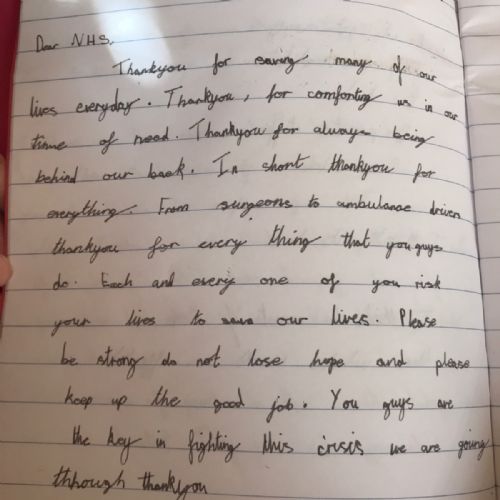 Dear NHS,
Thankyou for saving many of our
lives everyday. Thankyou, for comforting us in our
time of need. Thankyou for always being
behind our back. In short thankyou for
everything. From surgeons to ambulance drivers
thankyou for every thing that you guys
do. Each and every one of you risk
your lives to save our lives. Please
be strong do not lose hope and please
keep up the good job. You guys are
the key in fighting this crisis we are going
thhough thankyou